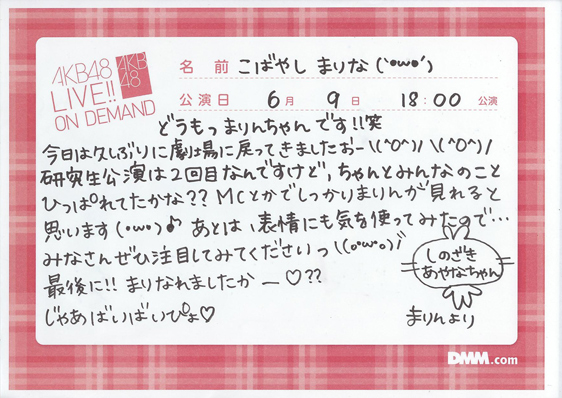 AKB48
LIVE!!
ON DEMAND
AKB
48
名前 こばやし まりな (`・ω・´)
公演日 6月 9日 18:00 公演
どうもっ まりんちゃん です!!笑
今日は久しぶりに劇場に戻ってきましたおー\(^O^)/ \(^O^)/
研究生公演は2回目なんですけど、ちゃんとみんなのこと
ひっぱれてたかな?? MCとかでしっかりまりんが見れると
思います(・ω・)♪ あとは、表情にも気を使ってみたので…
みなさんぜひ注目してみてくださいっ \(°ω°。)/
最後に!! まりなれましたかー♡??
じゃあばいばいぴょ♡
しのざき
あやなちゃん
まりんより
DMM.com